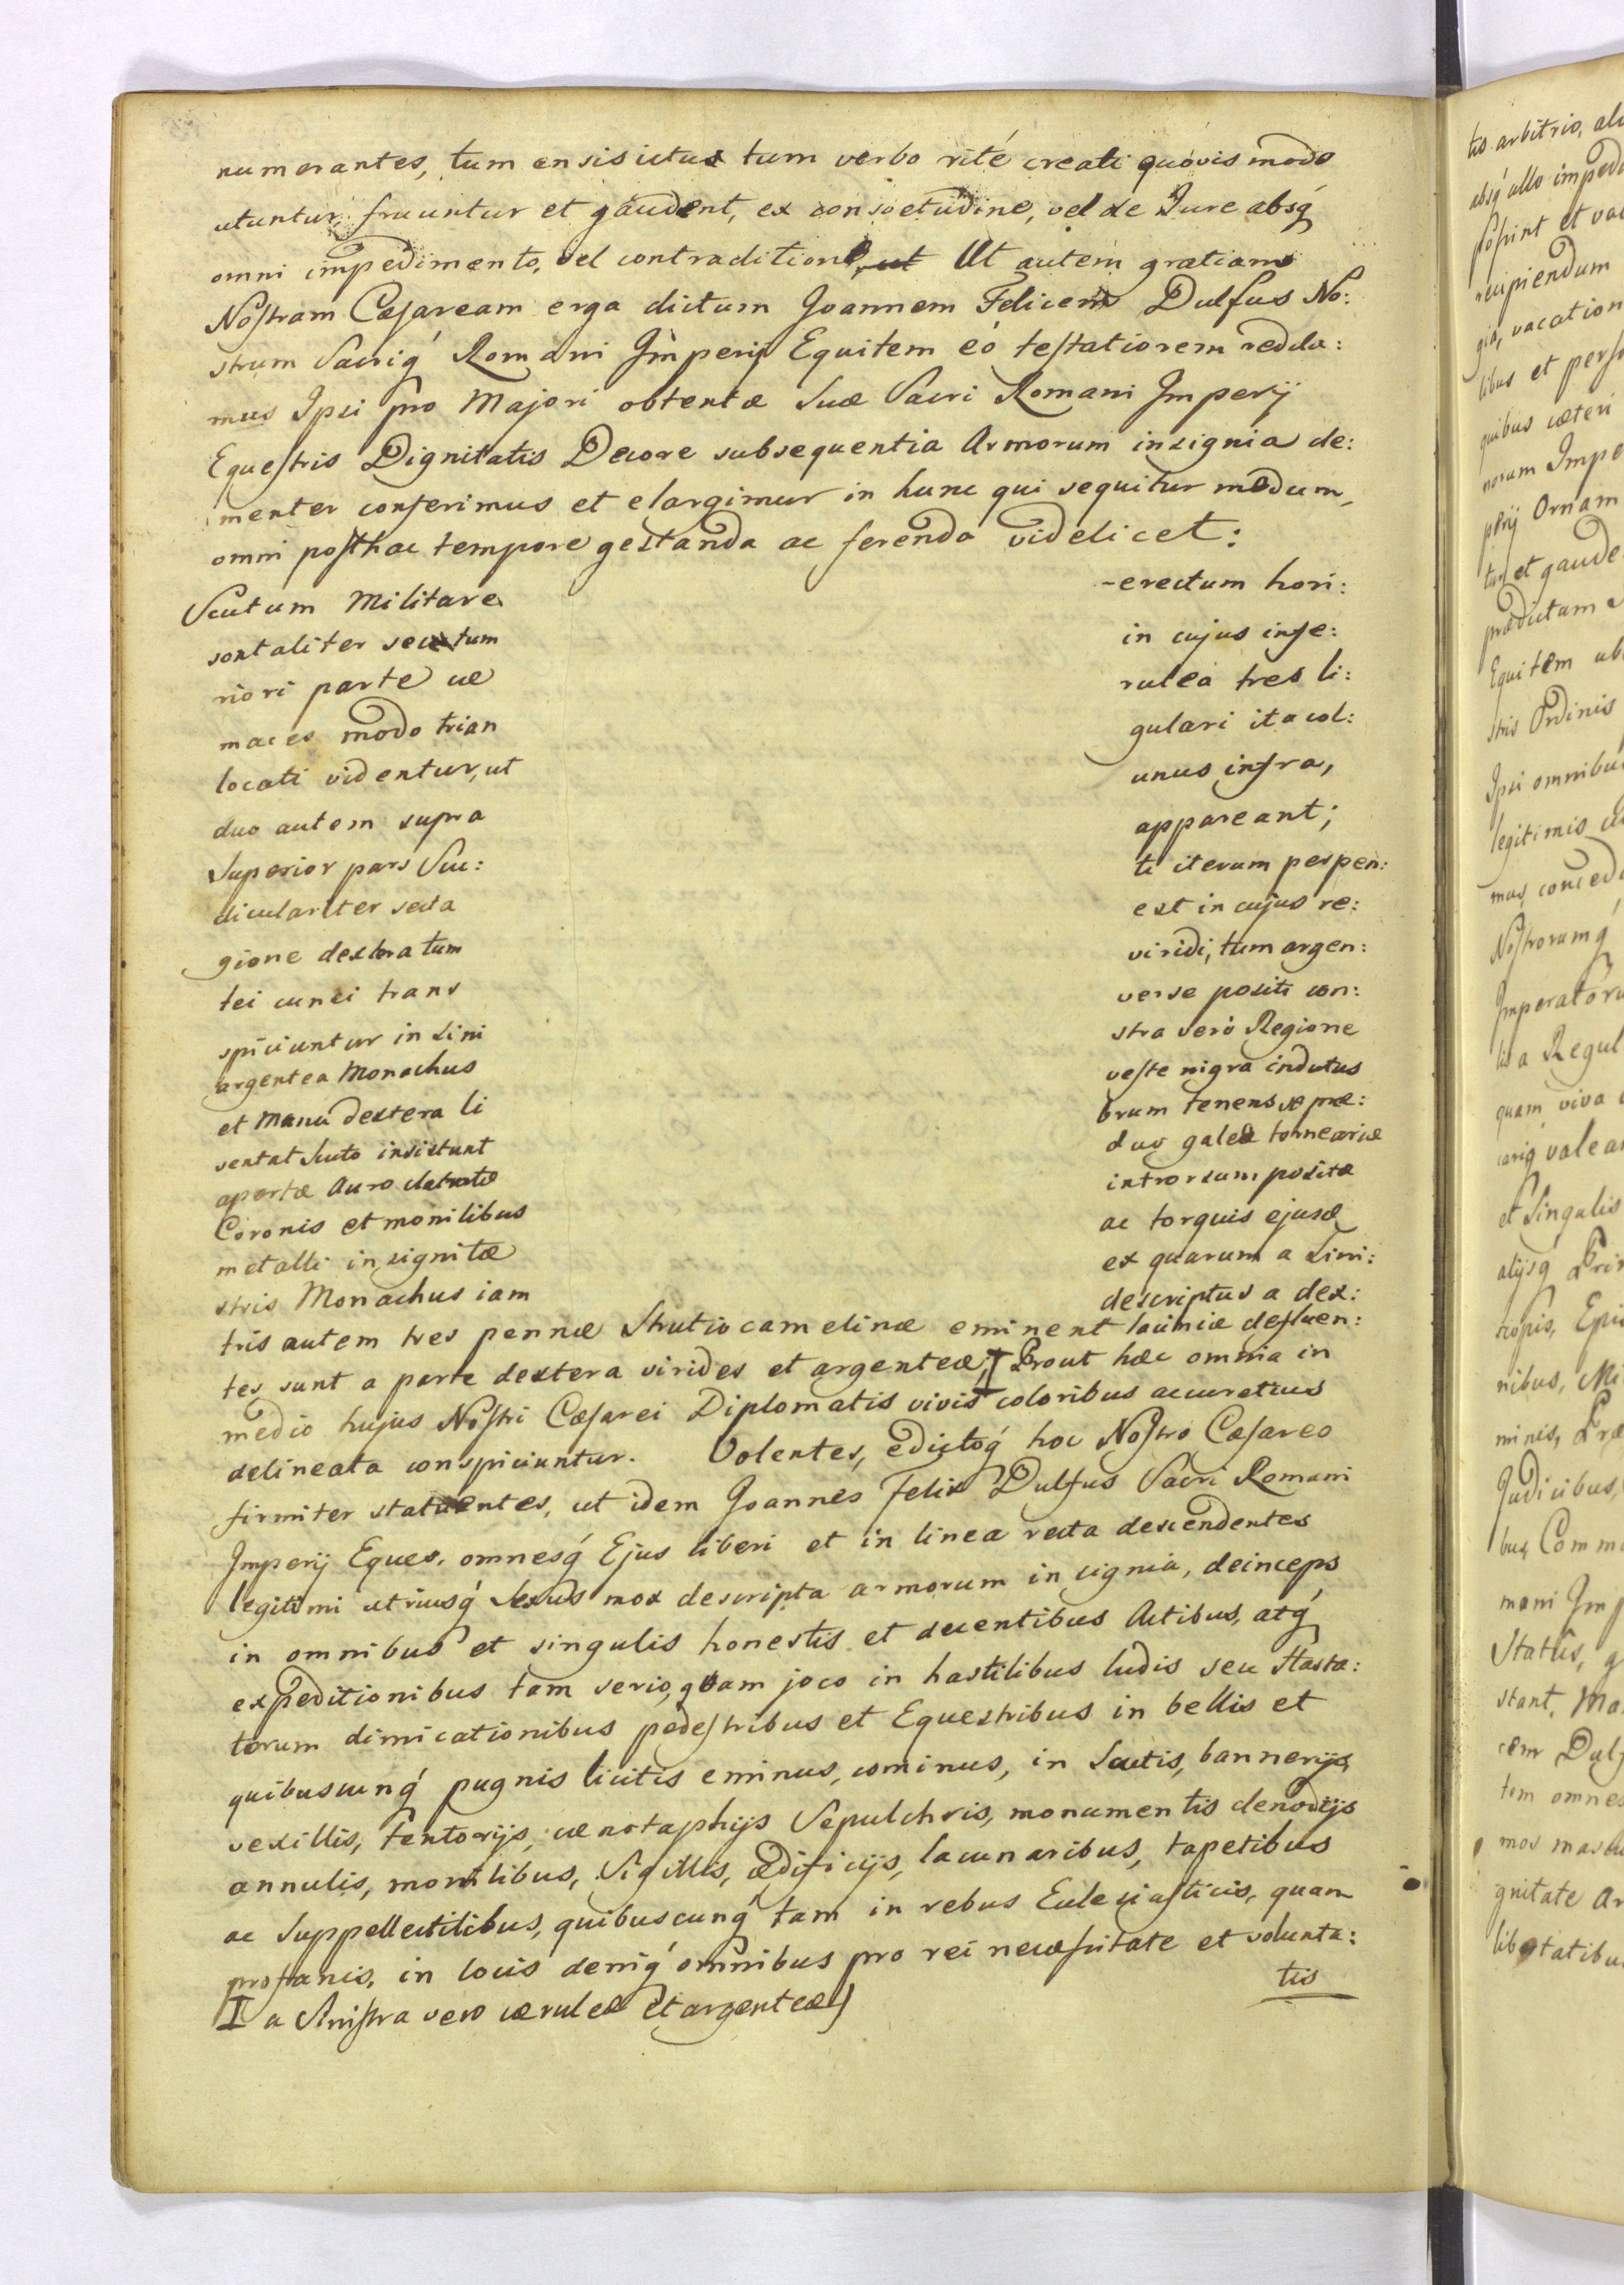 numerantes, tum ensis ictus tum verbo rité creati quóvis modo
utuntur, fruuntur et gaudent, ex consvetudine, vel de Jure absq́
omni impedimento, vel contraditione, ut Ut autem gratiam
Nostram Cæsaream erga dictum Joannem Felicem Dulfus No:
strum Sacriq́ Romani Imperij Equitem eó testatiorem redda:
mus Ipsi pro Majori obtentæ Suæ Sacri Romani Imperij
Equestris Dignitatis Decore subsequentia Armorum insignia de:
menter conferimus et elargimur in hunc qui sequitur modum,
omni posthac tempore gestanda ac ferenda videlicet:
Scutum Militare -erectum hori:
sontaliter sectum in cujus infe:
riori parte cæ rulea tres li:
maces modo trian gulari ita col:
locati videntur, ut unus infra,
duo autem supra appareant;
Superior pars Scu: ti iterum perpen:
diculariter secta est in cujus re:
gione dextera tum viridi, tum argen:
tei cunei trans verse positi con:
spiciuntur in Sini stra veró Regione
argentea Monachus veste nigra indutus
et Manu dextera li brum tenens se præ:
sentat Scuto insistunt duo galeæ torneariæ
apertæ Auro clatratæ introrsum positæ
Coronis et monilibus ac torquis ejusd
metalli insignitæ ex quarum a Sini:
stris Monachus iam descriptus a dex:
tris autem tres pennæ Strutiocamelinæ eminent laciniæ defluen:
tes sunt a parte dextera virides et argenteæ, I Prout hæc omnia in
medio hujus Nostri Cæsarei Diplomatis vivis coloribus accuratius
delineata conspiciuntur. Volentes, edictoq́ hoc Nostro Cæsareo
firmiter statuentes, ut idem Joannes Felix Dulfus Sacri Romani
Imperij Eques, omnesq́ Ejus liberi et in linea recta descendentes
legitimi utriusq́ Sexus mox descripta armorum insignia, deinceps
in omnibus et singulis honestis et decentibus Actibus, atq́
expeditionibus tam serio, quam joco in hastilibus ludis seu Hasta:
torum dimicationibus pedestribus et Equestribus in bellis et
quibuscunq́ pugnis licitis eminus, cominus, in Scutis, bannerijs,
vexillis, tentorijs, cænotaphijs Sepulchris, monumentis clenodijs
annulis, monilibus, Sigillis, ædificijs, lacunaribus, tapetibus
ac Suppellectilibus, quibuscunq́ tam in rebus Eulesiasticis, quam
profanis, in locis deniq́ omnibus pro rei necessitate et volunta:
tis
I a Sinistra vero cæruleæ et argenteæ)
tio arbitrio, ali
absq́ ullo impedi
possint et va
recipiendum
gia, vacation
libus et perso
quibus cæteri
norum Impe
perij Ornam
tur et gaude
prædictam
Equitem ab
stris Ordinis
Ipsi omnibus
legitimis
mus conced
Nostrorumq́
Imperatoru
lis a Regul
quam viva
cariq valea
et Singulis
alijsq́ Prin
scopis, Epis
nibus, Mi
minis, Præ
Judicibus,
bus Comm
mani Imp
Statûs, q
stant, Ma
cem Dulf
tem omnes
mos mascu
gnitate Ar
libertatibu